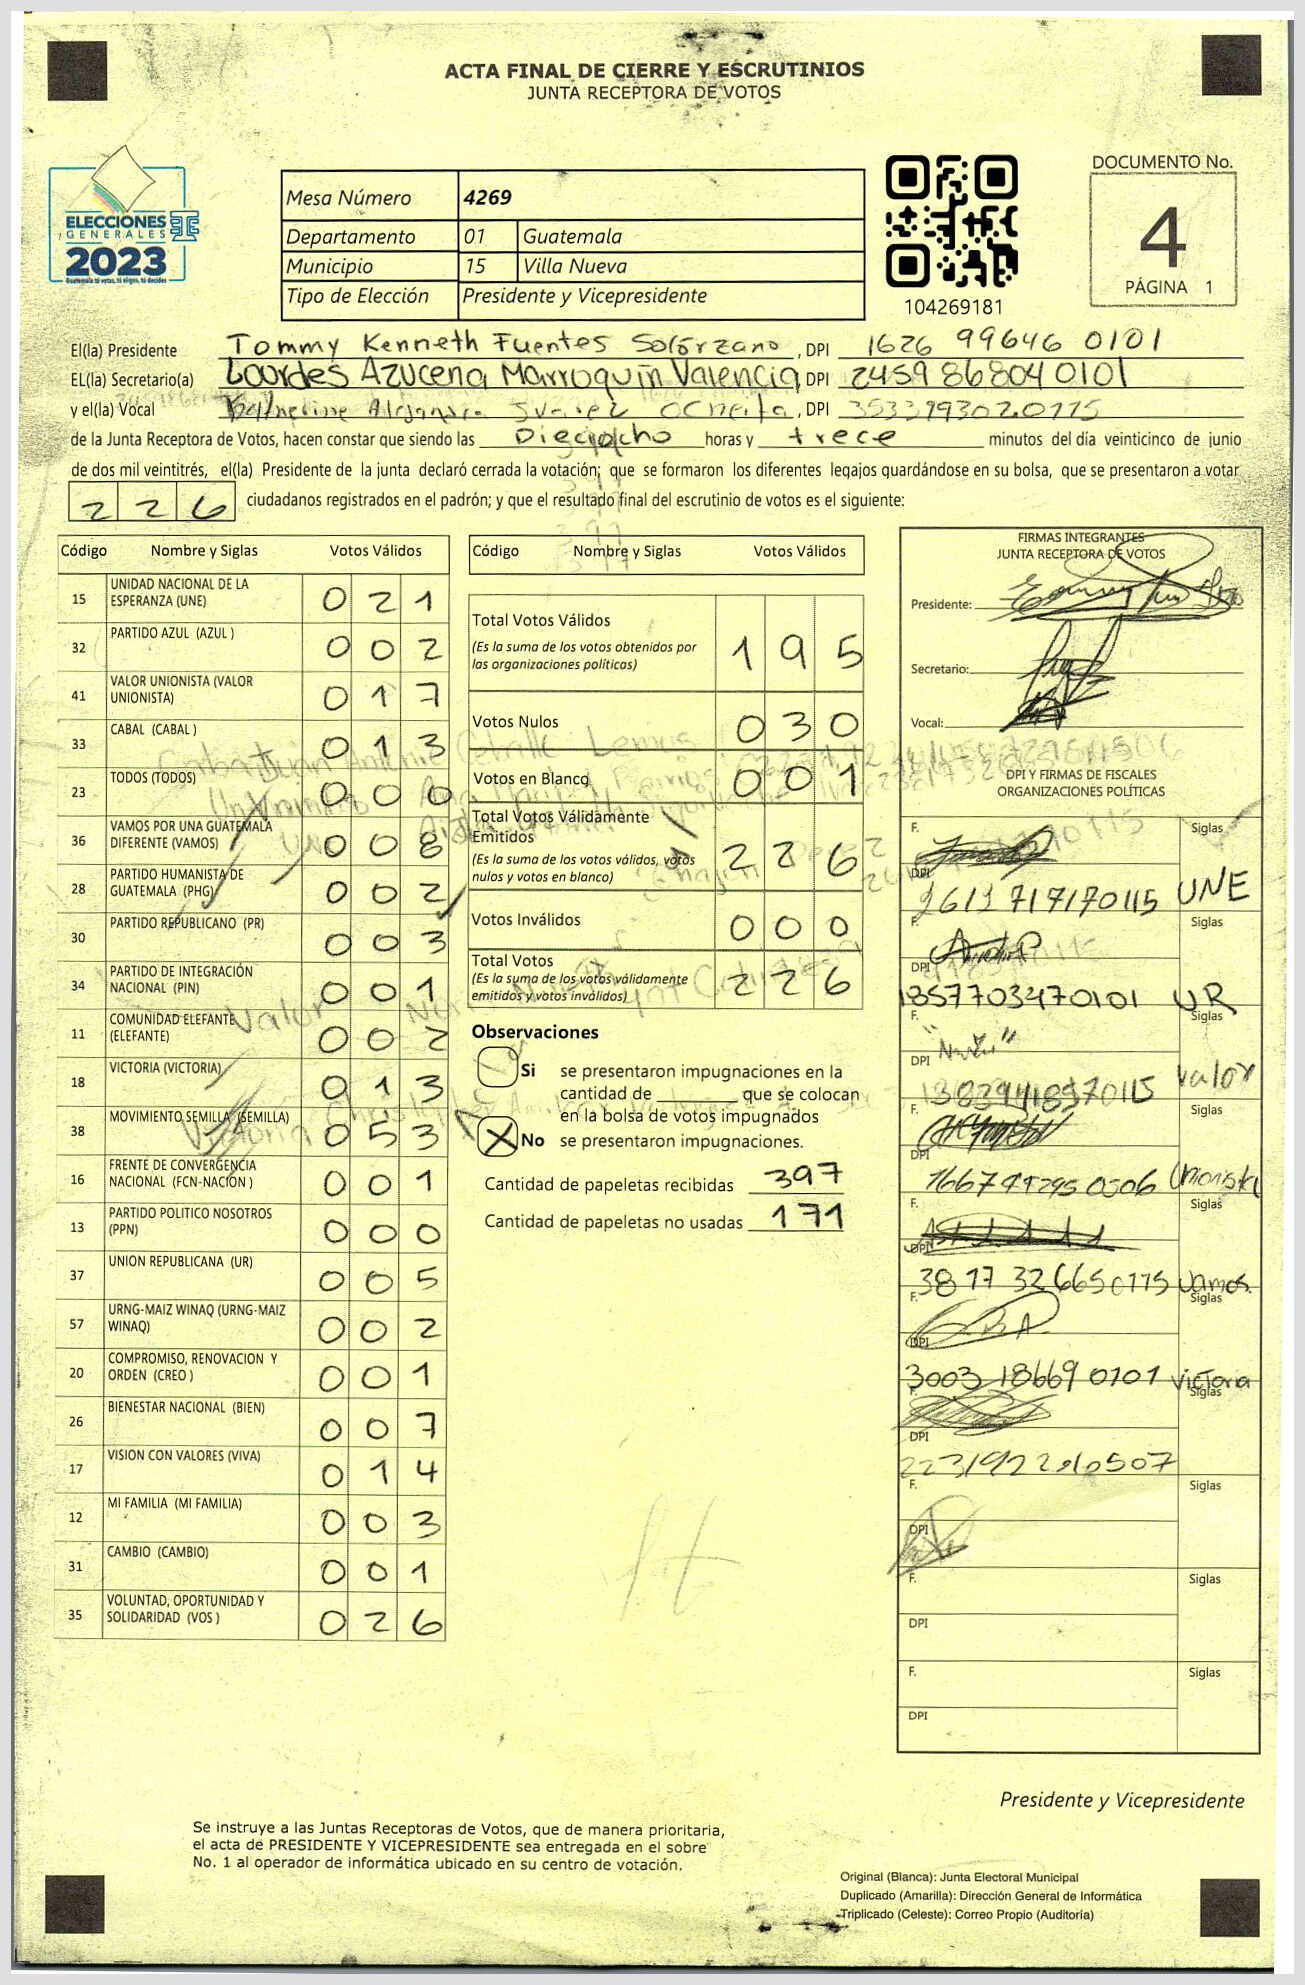 ACTA FINAL DE CIERRE Y ESCRUTINIOS
JUNTA RECEPTORA DE VOTOS
ELECCIONES
GENERALES
2023
Guatemala tú votas, tú eliges, tú decides
Mesa Número 4269
Departamento 01 Guatemala
Municipio 15 Villa Nueva
Tipo de Elección Presidente y Vicepresidente
104269181
DOCUMENTO No.
4
PÁGINA 1
El(la) Presidente Tommy Kenneth Fuentes Solórzano, DPI 1626 99646 0101
EL(la) Secretario(a) Lourdes Azucena Marroquín Valencia, DPI 2459 86804 0101
y el(la) Vocal, DPI
de la Junta Receptora de Votos, hacen constar que siendo las Dieciocho horas y trece minutos del día veinticinco de junio
de dos mil veintitrés, el(la) Presidente de la junta declaró cerrada la votación; que se formaron los diferentes legajos guardándose en su bolsa, que se presentaron a votar
226 ciudadanos registrados en el padrón; y que el resultado final del escrutinio de votos es el siguiente:
Código Nombre y Siglas Votos Válidos
15 UNIDAD NACIONAL DE LA ESPERANZA (UNE) 021
32 PARTIDO AZUL (AZUL ) 002
41 VALOR UNIONISTA (VALOR UNIONISTA) 017
33 CABAL (CABAL ) 013
23 TODOS (TODOS) 000
36 VAMOS POR UNA GUATEMALA DIFERENTE (VAMOS) 008
28 PARTIDO HUMANISTA DE GUATEMALA (PHG) 002
30 PARTIDO REPUBLICANO (PR) 003
34 PARTIDO DE INTEGRACIÓN NACIONAL (PIN) 001
11 COMUNIDAD ELEFANTE (ELEFANTE) 002
18 VICTORIA (VICTORIA) 013
38 MOVIMIENTO SEMILLA (SEMILLA) 053
16 FRENTE DE CONVERGENCIA NACIONAL (FCN-NACIÓN ) 001
13 PARTIDO POLITICO NOSOTROS (PPN) 000
37 UNION REPUBLICANA (UR) 005
57 URNG-MAIZ WINAQ (URNG-MAIZ WINAQ) 002
20 COMPROMISO, RENOVACION Y ORDEN (CREO ) 001
26 BIENESTAR NACIONAL (BIEN) 007
17 VISION CON VALORES (VIVA) 014
12 MI FAMILIA (MI FAMILIA) 003
31 CAMBIO (CAMBIO) 001
35 VOLUNTAD, OPORTUNIDAD Y SOLIDARIDAD (VOS ) 026
Código Nombre y Siglas Votos Válidos
Total Votos Válidos 195
(Es la suma de los votos obtenidos por
las organizaciones políticas)
Votos Nulos 030
Votos en Blanco 001
Total Votos Válidamente
Emitidos 226
(Es la suma de los votos válidos, votos
nulos y votos en blanco)
Votos Inválidos 000
Total Votos 226
(Es la suma de los votos válidamente
emitidos y votos inválidos)
Observaciones
Si se presentaron impugnaciones en la
cantidad de que se colocan
en la bolsa de votos impugnados
X No se presentaron impugnaciones.
Cantidad de papeletas recibidas 397
Cantidad de papeletas no usadas 171
FIRMAS INTEGRANTES
JUNTA RECEPTORA DE VOTOS
Presidente:
Secretario:
Vocal:
DPI Y FIRMAS DE FISCALES
ORGANIZACIONES POLÍTICAS
F. Siglas
DPI 2613 71717 0115 UNE
F. Siglas
DPI 1857703470101 UR
F. Siglas
DPI Valor
F. Siglas
DPI Unionista
F. Siglas
DPI 3817 32665 0115 Vamos
F. Siglas
DPI 3003 18669 0101 Victoria
F. Siglas
DPI
F. Siglas
DPI
F. Siglas
DPI
F. Siglas
DPI
Presidente y Vicepresidente
Se instruye a las Juntas Receptoras de Votos, que de manera prioritaria,
el acta de PRESIDENTE Y VICEPRESIDENTE sea entregada en el sobre
No. 1 al operador de informática ubicado en su centro de votación.
Original (Blanca): Junta Electoral Municipal
Duplicado (Amarilla): Dirección General de Informática
Triplicado (Celeste): Correo Propio (Auditoría)